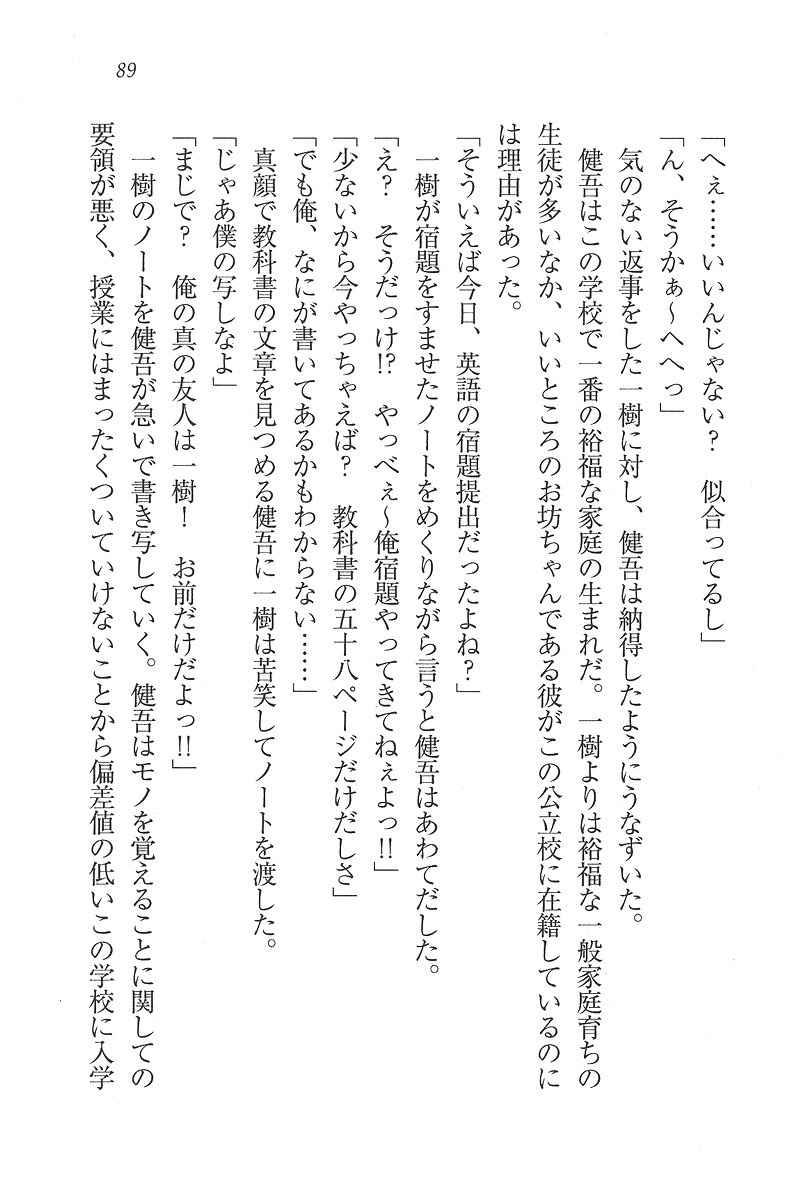 89
「へぇ……いいんじゃない？　似合ってるし」
「ん、そうかぁ～へへっ」
　気のない返事をした一樹に対し、健吾は納得したようにうなずいた。
　健吾はこの学校で一番の裕福な家庭の生まれだ。一樹よりは裕福な一般家庭育ちの
生徒が多いなか、いいところのお坊ちゃんである彼がこの公立校に在籍しているのに
は理由があった。
「そういえば今日、英語の宿題提出だったよね？」
　一樹が宿題をすませたノートをめくりながら言うと健吾はあわてだした。
「え？　そうだっけ!?　やっべぇ～俺宿題やってきてねぇよっ!!」
「少ないから今やっちゃえば？　教科書の五十八ページだけだしさ」
「でも俺、なにが書いてあるかもわからない……」
　真顔で教科書の文章を見つめる健吾に一樹は苦笑してノートを渡した。
「じゃあ僕の写しなよ」
「まじで？　俺の真の友人は一樹！　お前だけだよっ!!」
　一樹のノートを健吾が急いで書き写していく。健吾はモノを覚えることに関しての
要領が悪く、授業にはまったくついていけないことから偏差値の低いこの学校に入学